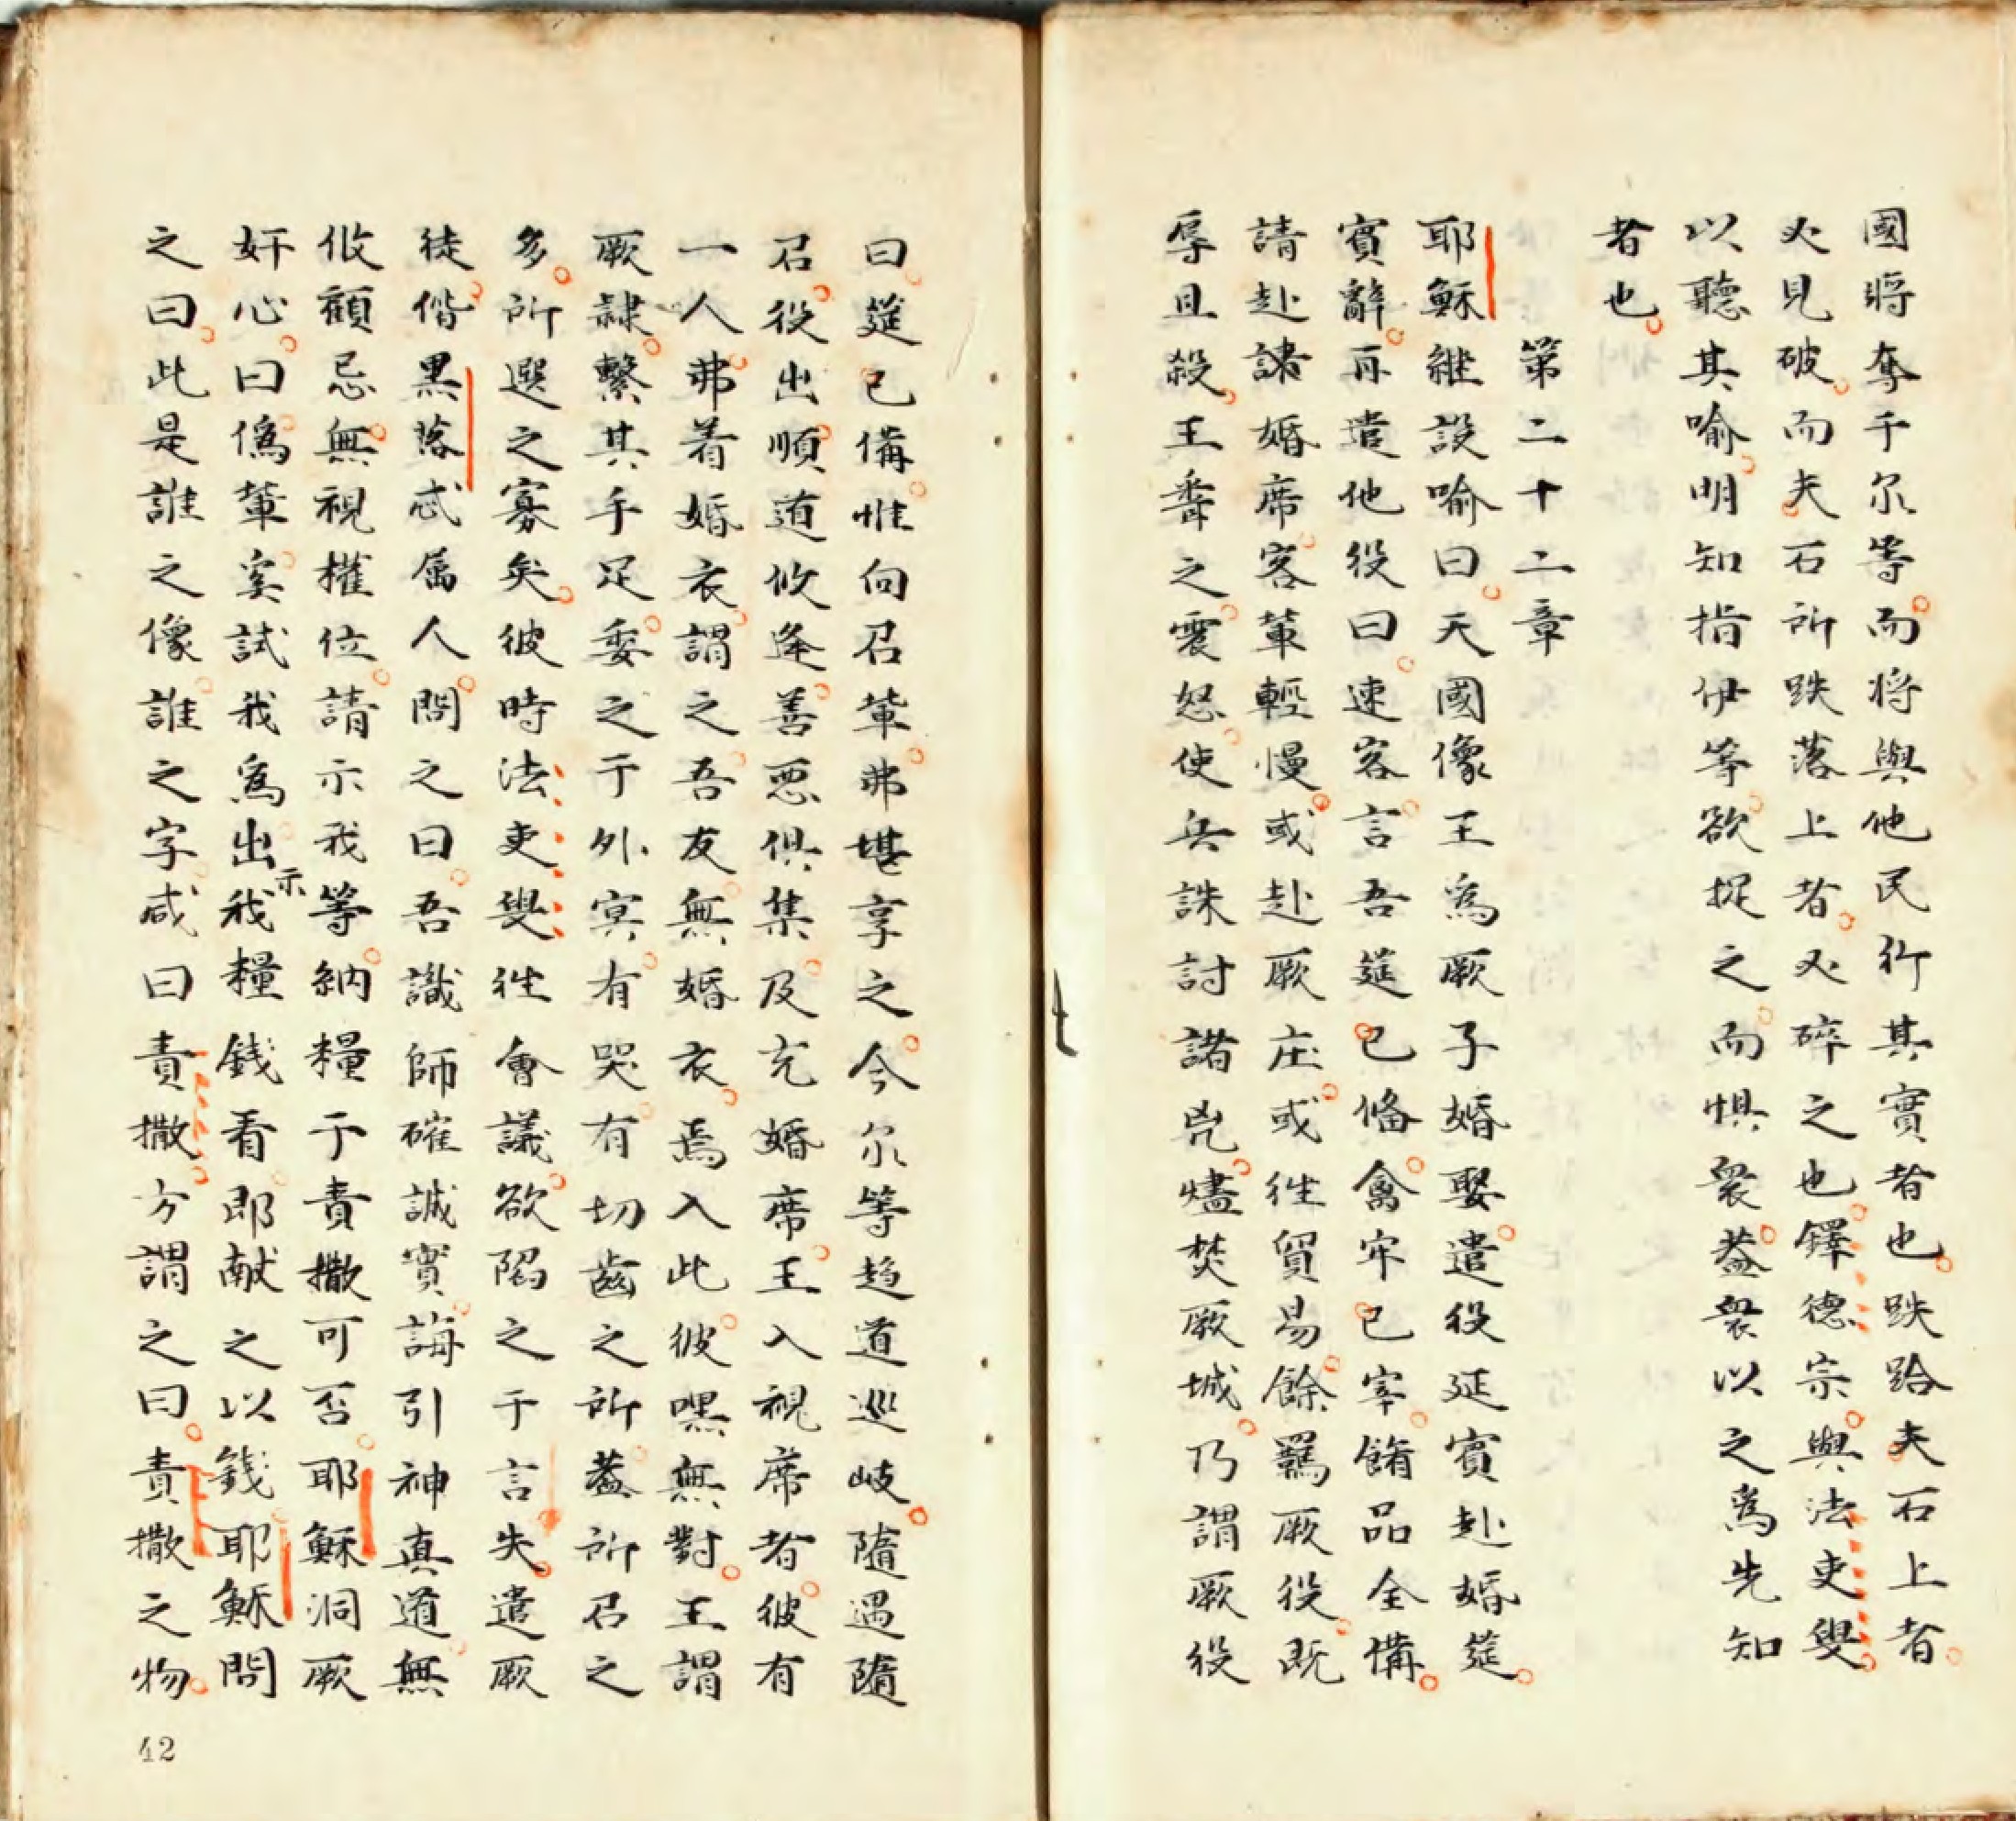 國將奪于尔等而将與他民行其實者也跌跲夫石上者
必見破而夫石所跌落上者必碎之也鐸德宗與法吏叟
以聽其喻明知指伊等欲捉之而惧衆葢衆以之為先知
者也
第二十二章
耶穌継設喻曰天國像王為厥子婚娶遣役延賓赴婚筵
賓辭再遣他役曰速客言吾筵已俻禽牢已宰餚品全備
請赴諸婚席客軰輕慢或赴厥庄或徃貿易餘羈厥役既
辱且殺王聞之震怒使兵誅討諸兇燼焚厥城乃謂厥役
曰筵已備惟向召軰弗堪享之今尔等趋道巡岐隨遇隨
召役出順道攸逄善悪俱集及充婚席王入視席者彼有
一人弗着婚衣謂之吾友無婚衣焉入此彼嘿無對王謂
厥隷繫其手足委之于外㝠有哭有切齒之所葢所召之
多所選之寡矣彼時法吏叟徃會議欲陷之于言失遣厥
徒偕黒落忒属人問之曰吾識師確誠實誨引神真道無
攸顧忌無視權位請示我等納糧于責撒可否耶穌洞厥
奸心曰偽軰奚試我為出示我糧錢看即献之以錢耶穌問
之曰此是誰之像誰之字咸曰責撒方謂之曰責撒之物
42